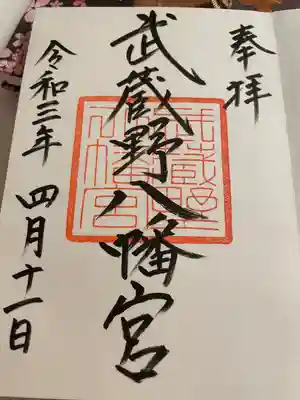 奉拝
武蔵野八幡宮
武蔵野
八幡宮
令和三年 四月十一日